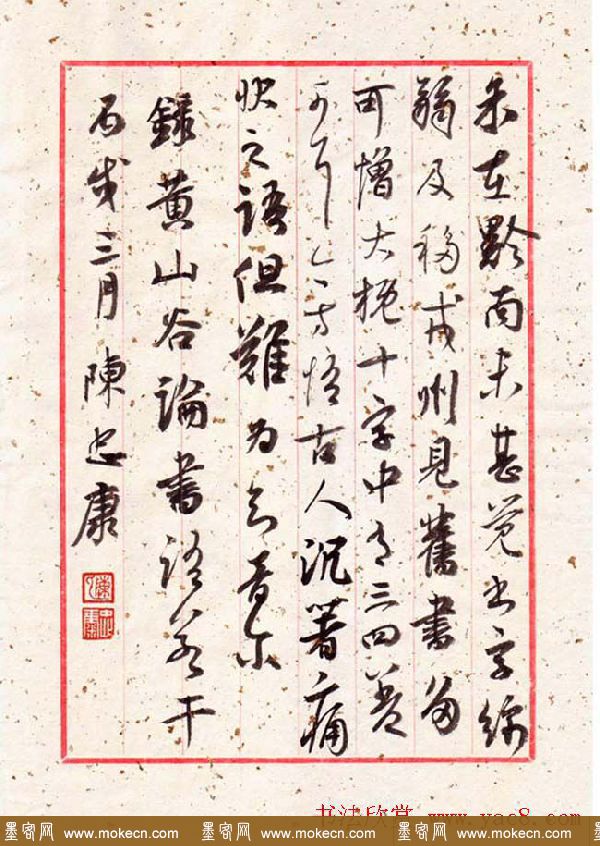 余在黔南未甚覺書字綿
弱及移戎州見舊書多
可憎大概十字中有三四差
可耳今方悟古人沉著痛
快之語但難為知音尔
錄黃山谷論書語若干
丙戌三月陳忠康
书法欣赏 www.yac8.com
墨客网 www.mokecn.com 墨客网 www.mokecn.com 墨客网 www.mokecn.com